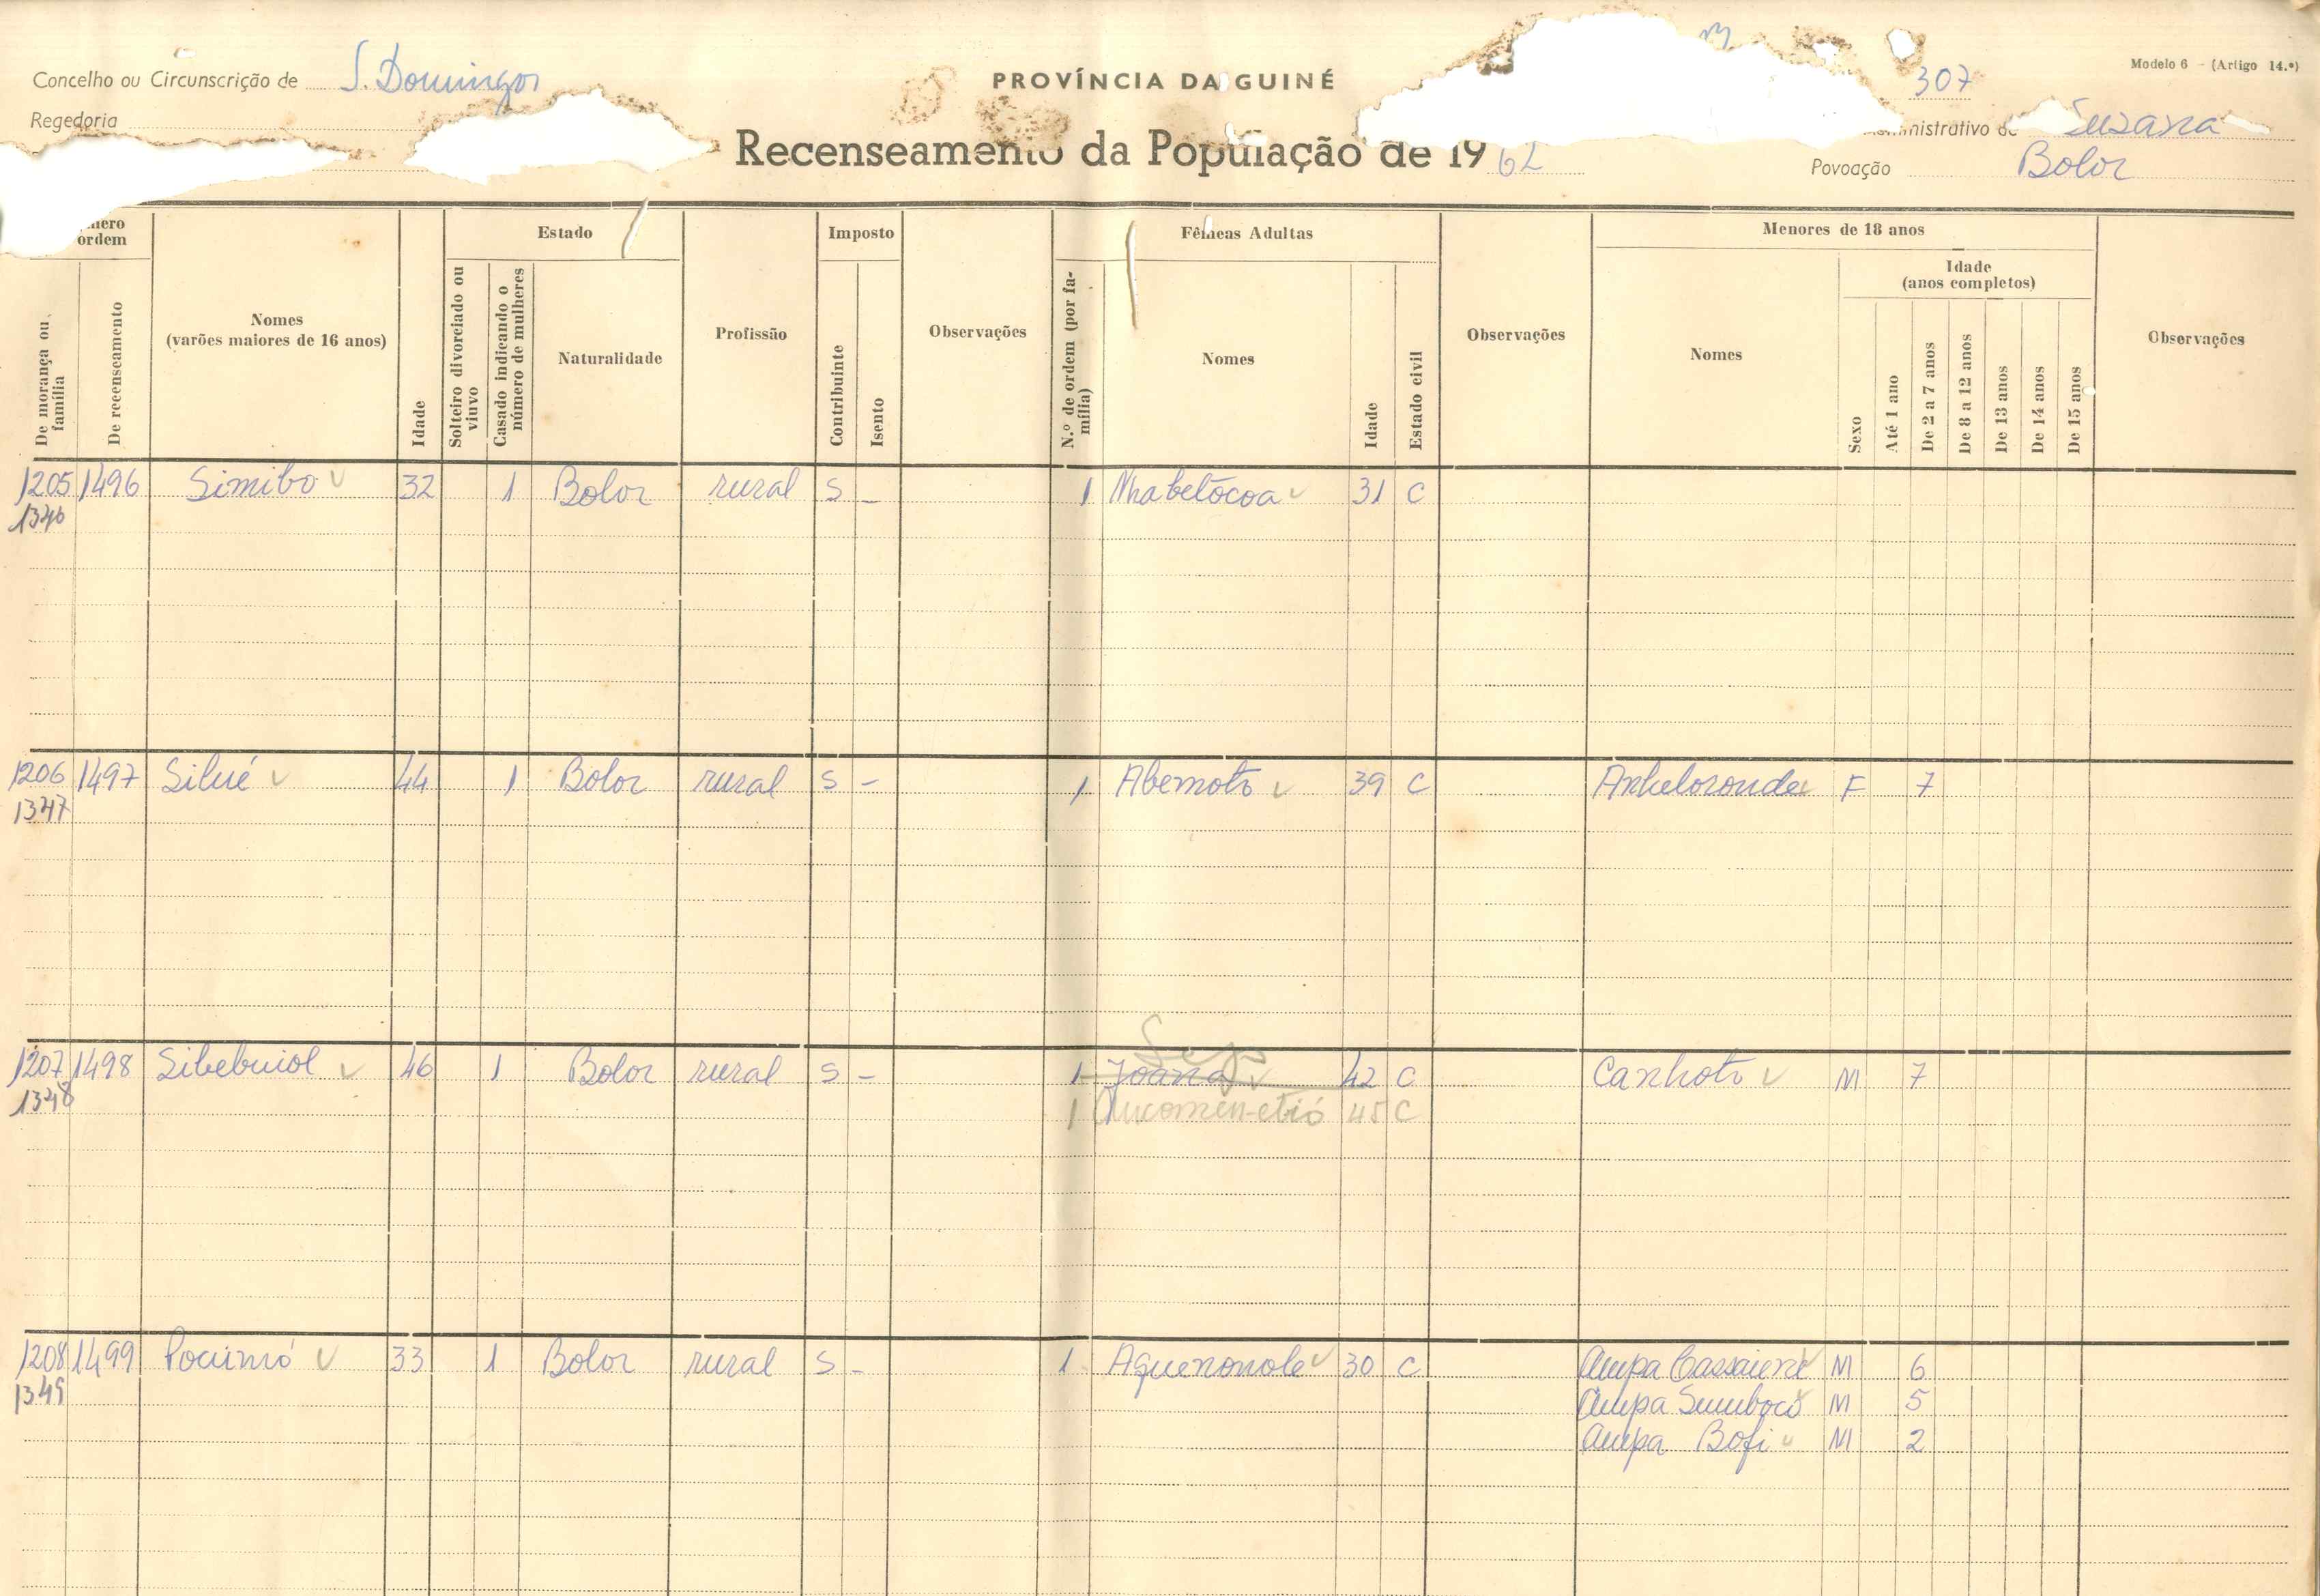 Modelo 6 - (Artigo 14.º)
Concelho ou Circunscrição de S. Domingos
PROVÍNCIA DA GUINÉ
307
Regedoria
Suzana
Recenseamento da População de 1962
Povoação Bolor
ordem
De morança ou família
De recenseamento
Nomes
(varões maiores de 16 anos)
Idade
Estado
Solteiro divorciado ou viuvo
Casado indicando o número de mulheres
Naturalidade
Profissão
Imposto
Contribuinte
Isento
Observações
Fêmeas Adultas
N.º de ordem (por família)
Nomes
Idade
Estado civil
Observações
Menores de 18 anos
Nomes
Sexo
Idade
(anos completos)
Até 1 ano
De 2 a 7 anos
De 8 a 12 anos
De 13 anos
De 14 anos
De 15 anos
Observações
1205 1496 Simibo 32 1 Bolor rural S - 1 Nhabetócoa 31 C
1346
1206 1497 Silué 44 1 Bolor rural S - 1 Abemoto 39 C Anheloronda F 7
1347
1207 1498 Sibebuiol 46 1 Bolor rural S - 1 Joana 42 C Canhoto M 7
1348 1 45 C
1208 1499 Pocumó 33 1 Bolor rural S - 1 Aquenonole 30 C Ampa Cassaiené M 6
1349 Ampa Sumbocó M 5
Ampa Bofi M 2